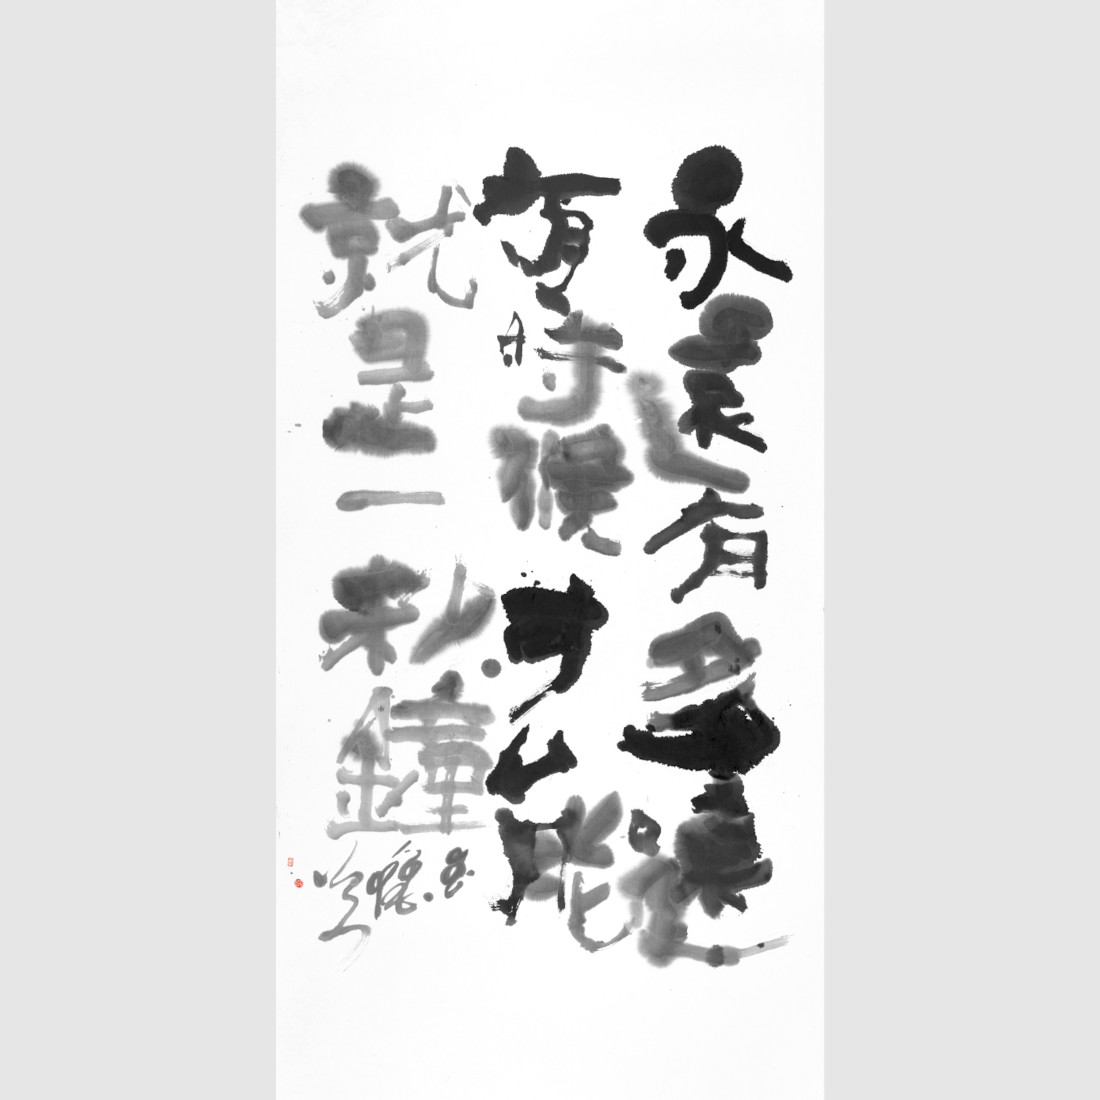 永遠有多遠
有時候可能
就是一秒鐘